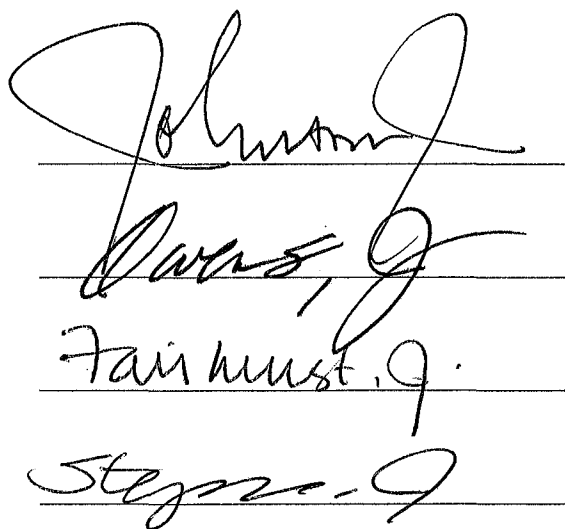 Johnson J
Owens, J
Fairhurst, J.
Stephens, J